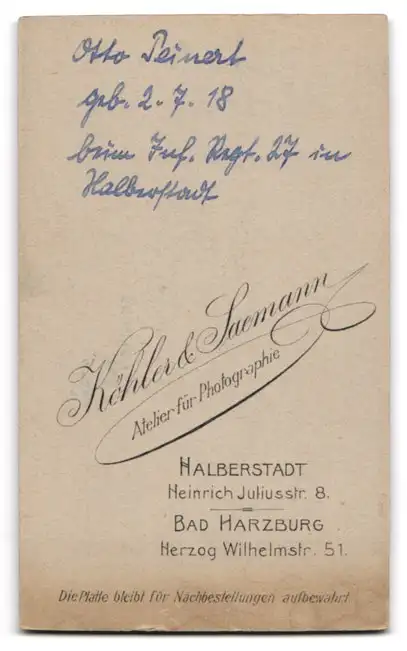 Otto Peinert
geb. 2. 7. 18
beim Inf. Regt. 27 in
Halberstadt
Köhler & Saemann
Atelier für Photographie
HALBERSTADT
Heinrich Juliusstr. 8.
BAD HARZBURG
Herzog Wilhelmstr. 51.
Die Platte bleibt für Nachbestellungen aufbewahrt